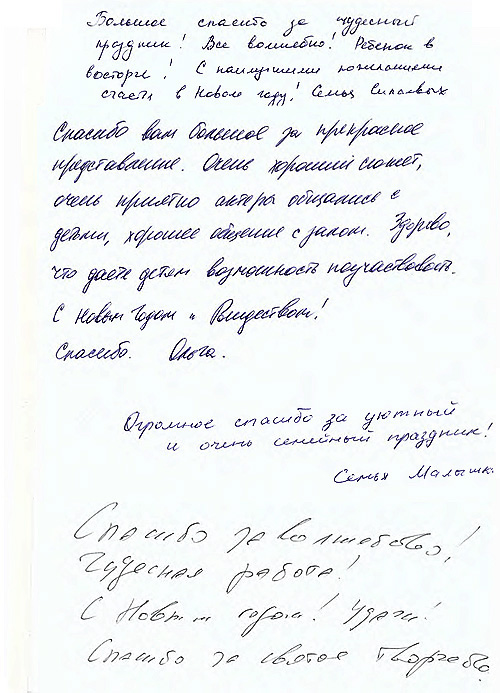 Большое спасибо за чудесный
праздник! Все волшебно! Ребенок в
восторге! С наилучшими пожеланиями
счастья в Новом году! Семья
Спасибо вам большое за прекрасное
представление. Очень хороший сюжет,
очень приятно актеры общались с
детьми, хорошее общение с залом. Здорово,
что даете детям возможность поучаствовать.
С Новым Годом и Рождеством!
Спасибо. Ольга.
Огромное спасибо за уютный
и очень семейный праздник!
Семья Малышк
Спасибо за волшебство!
Чудесная работа!
С Новым годом! Удачи!
Спасибо за святое творчество